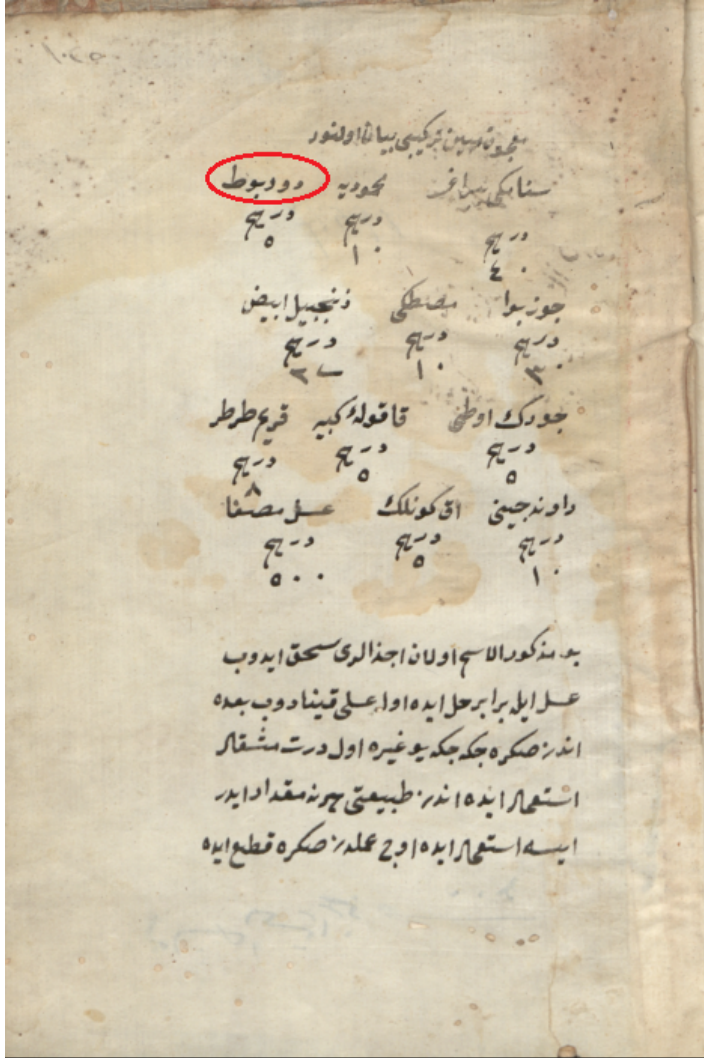 معجون مسهل تركيبى بيان اولنور
سنامكى يپراغى محموديه دودبوط
درهم درهم درهم
٤٠ ١٠ ٥
جوزبوا مصطكى زنجبيل ابيض
درهم درهم درهم
٣٠ ١٠
جورك اوطى قاقولۀ كبير قريم طرطر
درهم درهم درهم
٥ ٥ ٨
راوند چينى اق كونلك عسل مصفا
درهم درهم درهم
١٠ ٥ ٥٠٠
بو مذكور الاسم اولان اجذالرى سحق ايدوب
عسل ايله برابر حل ايده اول عسلى قينادوب بعده
اندن صكره جكه جكه يوغيره اول درت مثقال
استعمال ايده اندن طبيعتى هر نه مقدار ايدر
ايسه استعمال ايده اوچ عملدن صكره قطع ايده